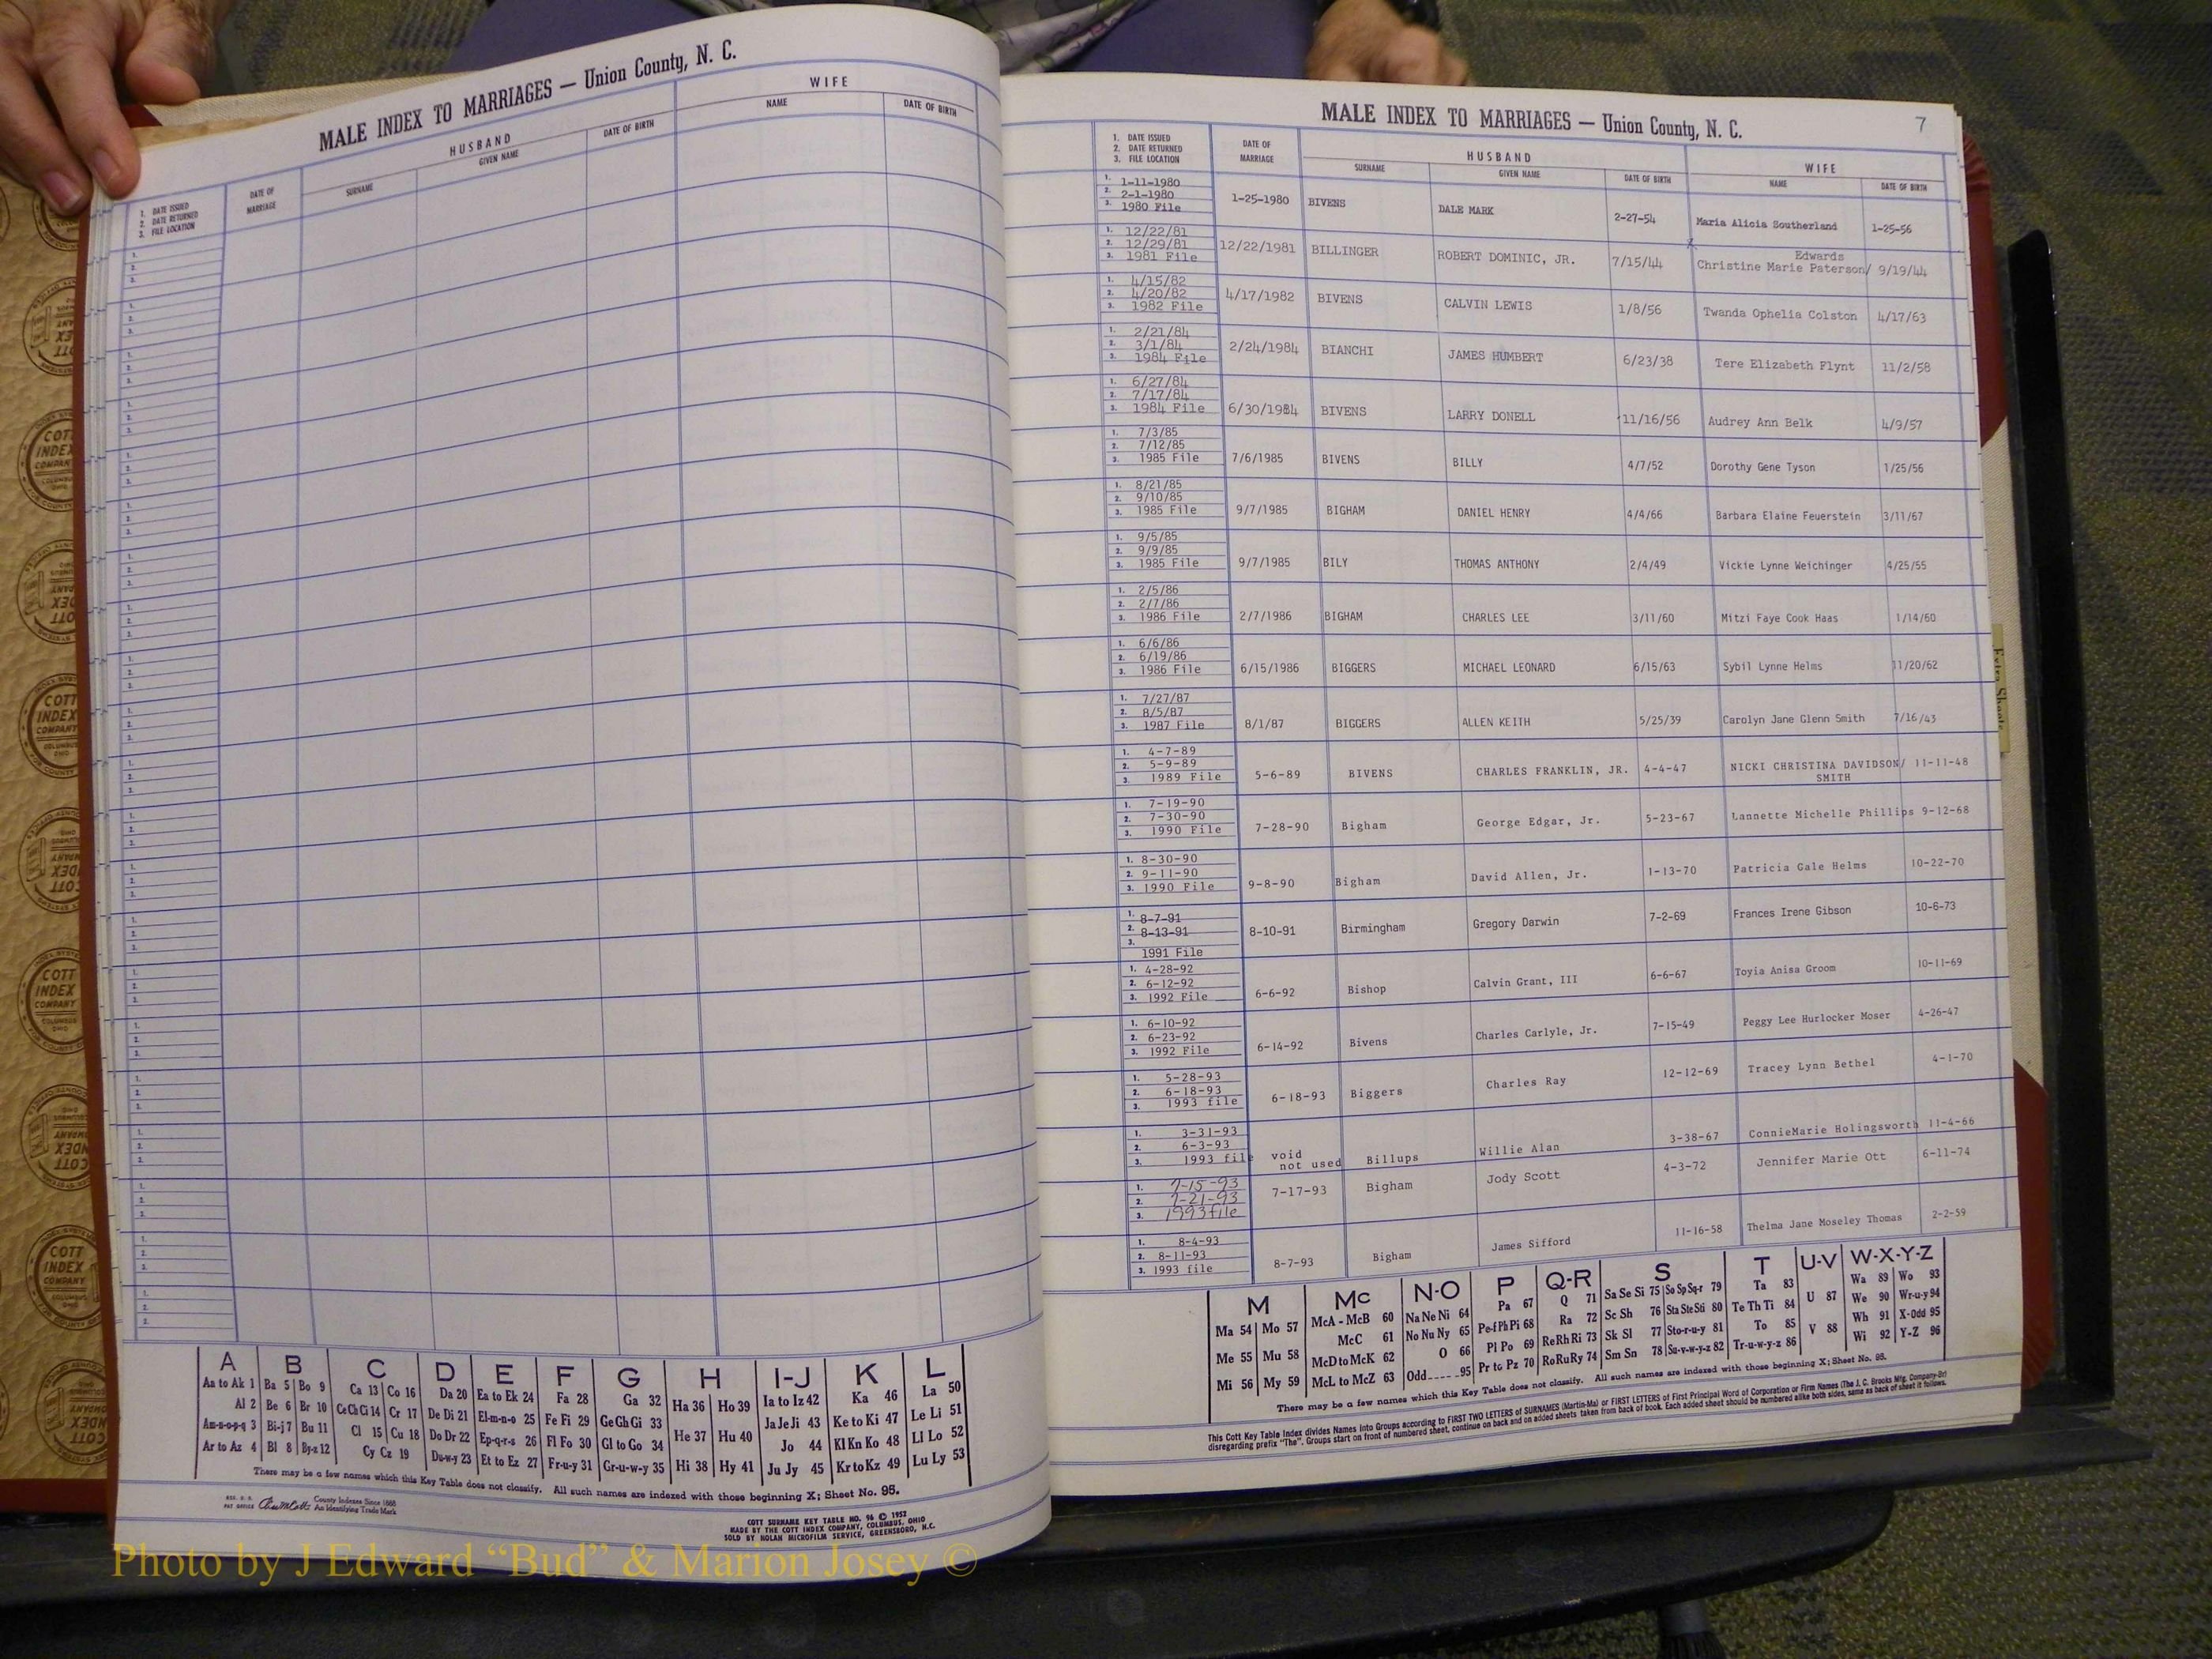 MALE INDEX TO MARRIAGES — Union County, N. C.
HUSBAND
WIFE
1. DATE ISSUED
2. DATE RETURNED
3. FILE LOCATION
DATE OF MARRIAGE
SURNAME
GIVEN NAME
DATE OF BIRTH
NAME
DATE OF BIRTH
A B C D E F G H I-J K L
Aa to Ak 1 Ba 5 Bo 9 Ca 13 Co 16 Da 20 Ea to Ek 24 Fa 28 Ga 32 Ha 36 Ho 39 Ia to Iz 42 Ka 46 La 50
Al 2 Be 6 Br 10 Ce Ch Ci 14 Cr 17 De Di 21 El-m-n-o 25 Fe Fi 29 Ge Gh Gi 33 Ja Je Ji 43 Ke to Ki 47 Le Li 51
Am-n-o-p-q 3 Bi-j 7 Bu 11 Cl 15 Cu 18 Do Dr 22 Ep-q-r-s 26 Fl Fo 30 Gl to Go 34 He 37 Hu 40 Jo 44 Kl Kn Ko 48 Ll Lo 52
Ar to Az 4 Bl 8 By-z 12 Cy Cz 19 Du-w-y 23 Et to Ez 27 Fr-u-y 31 Gr-u-w-y 35 Hi 38 Hy 41 Ju Jy 45 Kr to Kz 49 Lu Ly 53
There may be a few names which this Key Table does not classify. All such names are indexed with those beginning X; Sheet No. 95.
County Indexes Since 1888
An Identifying Trade Mark
COTT SURNAME KEY TABLE NO. 96 © 1952
MADE BY THE COTT INDEX COMPANY, COLUMBUS, OHIO
SOLD BY NOLAN MICROFILM SERVICE, GREENSBORO, N.C.
Photo by J Edward “Bud” & Marion Josey ©
MALE INDEX TO MARRIAGES — Union County, N. C.
7
1. DATE ISSUED
2. DATE RETURNED
3. FILE LOCATION
DATE OF MARRIAGE
HUSBAND
WIFE
SURNAME
GIVEN NAME
DATE OF BIRTH
NAME
DATE OF BIRTH
1. 1-11-1980
2. 2-1-1980
3. 1980 File
1-25-1980 BIVENS DALE MARK 2-27-54 Maria Alicia Southerland 1-25-56
1. 12/22/81
2. 12/29/81
3. 1981 File
12/22/1981 BILLINGER ROBERT DOMINIC, JR. 7/15/44 Christine Marie Paterson/ Edwards 9/19/44
1. 4/15/82
2. 4/20/82
3. 1982 File
4/17/1982 BIVENS CALVIN LEWIS 1/8/56 Twanda Ophelia Colston 4/17/63
1. 2/21/84
2. 3/1/84
3. 1984 File
2/24/1984 BIANCHI JAMES HUMBERT 6/23/38 Tere Elizabeth Flynt 11/2/58
1. 6/27/84
2. 7/17/84
3. 1984 File
6/30/1984 BIVENS LARRY DONELL 11/16/56 Audrey Ann Belk 4/9/57
1. 7/3/85
2. 7/12/85
3. 1985 File
7/6/1985 BIVENS BILLY 4/7/52 Dorothy Gene Tyson 1/25/56
1. 8/21/85
2. 9/10/85
3. 1985 File
9/7/1985 BIGHAM DANIEL HENRY 4/4/66 Barbara Elaine Feuerstein 3/11/67
1. 9/5/85
2. 9/9/85
3. 1985 File
9/7/1985 BILY THOMAS ANTHONY 2/4/49 Vickie Lynne Weichinger 4/25/55
1. 2/5/86
2. 2/7/86
3. 1986 File
2/7/1986 BIGHAM CHARLES LEE 3/11/60 Mitzi Faye Cook Haas 1/14/60
1. 6/6/86
2. 6/19/86
3. 1986 File
6/15/1986 BIGGERS MICHAEL LEONARD 6/15/63 Sybil Lynne Helms 11/20/62
1. 7/27/87
2. 8/5/87
3. 1987 File
8/1/87 BIGGERS ALLEN KEITH 5/25/39 Carolyn Jane Glenn Smith 7/16/43
1. 4-7-89
2. 5-9-89
3. 1989 File
5-6-89 BIVENS CHARLES FRANKLIN, JR. 4-4-47 NICKI CHRISTINA DAVIDSON/ SMITH 11-11-48
1. 7-19-90
2. 7-30-90
3. 1990 File
7-28-90 Bigham George Edgar, Jr. 5-23-67 Lannette Michelle Phillips 9-12-68
1. 8-30-90
2. 9-11-90
3. 1990 File
9-8-90 Bigham David Allen, Jr. 1-13-70 Patricia Gale Helms 10-22-70
1. 8-7-91
2. 8-13-91
3. 1991 File
8-10-91 Birmingham Gregory Darwin 7-2-69 Frances Irene Gibson 10-6-73
1. 4-28-92
2. 6-12-92
3. 1992 File
6-6-92 Bishop Calvin Grant, III 6-6-67 Toyia Anisa Groom 10-11-69
1. 6-10-92
2. 6-23-92
3. 1992 File
6-14-92 Bivens Charles Carlyle, Jr. 7-15-49 Peggy Lee Hurlocker Moser 4-26-47
1. 5-28-93
2. 6-18-93
3. 1993 file
6-18-93 Biggers Charles Ray 12-12-69 Tracey Lynn Bethel 4-1-70
1. 3-31-93
2. 6-3-93
3. 1993 file
void not used Billups Willie Alan 3-38-67 ConnieMarie Holingsworth 11-4-66
1. 7-15-93
2. 7-21-93
3. 1993 file
7-17-93 Bigham Jody Scott 4-3-72 Jennifer Marie Ott 6-11-74
1. 8-4-93
2. 8-11-93
3. 1993 file
8-7-93 Bigham James Sifford 11-16-58 Thelma Jane Moseley Thomas 2-2-59
M Mc N-O P Q-R S T U-V W-X-Y-Z
Ma 54 Mo 57 McA - McB 60 Na Ne Ni 64 Pa 67 Q 71 Sa Se Si 75 So Sp Sq-r 79 Ta 83 U 87 Wa 89 Wo 93
Me 55 Mu 58 McC 61 No Nu Ny 65 Pe-f Ph Pi 68 Ra 72 Sc Sh 76 Sta Ste Sti 80 Te Th Ti 84 We 90 Wr-u-y 94
McD to McK 62 O 66 Pl Po 69 Re Rh Ri 73 Sk Sl 77 Sto-r-u-y 81 To 85 V 88 Wh 91 X-Odd 95
Mi 56 My 59 McL to McZ 63 Odd 95 Pr to Pz 70 Ro Ru Ry 74 Sm Sn 78 Su-v-w-y-z 82 Tr-u-w-y-z 86 Wi 92 Y-Z 96
There may be a few names which this Key Table does not classify. All such names are indexed with those beginning X; Sheet No. 95.
This Cott Key Table Index divides Names into Groups according to FIRST TWO LETTERS of SURNAMES (Martin-Ma) or FIRST LETTERS of First Principal Word of Corporation or Firm Names (The J. C. Brooks Mfg. Company-Br)
disregarding prefix "The". Groups start on front of numbered sheet, continue on back and on added sheets taken from back of book. Each added sheet should be numbered alike both sides, same as back of sheet it follows.
Extra Sheets
COTT INDEX COMPANY
COLUMBUS OHIO